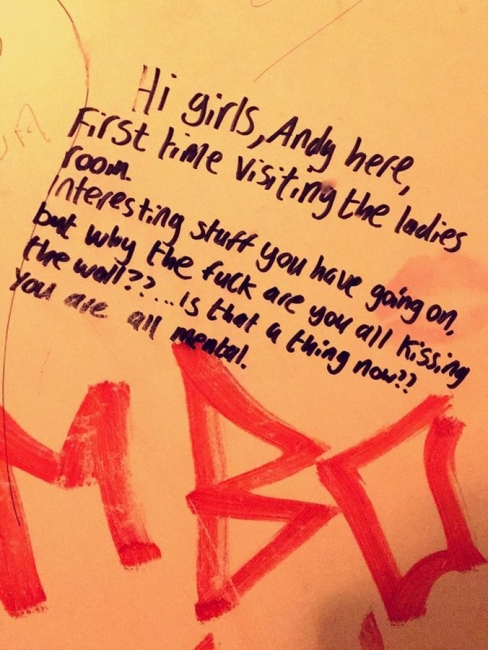 Hi girls, Andy here,
First time visiting the ladies
room
Interesting stuff you have going on,
but why the fuck are you all kissing
the wall??...is that a thing now??
You are all mental.
MBO